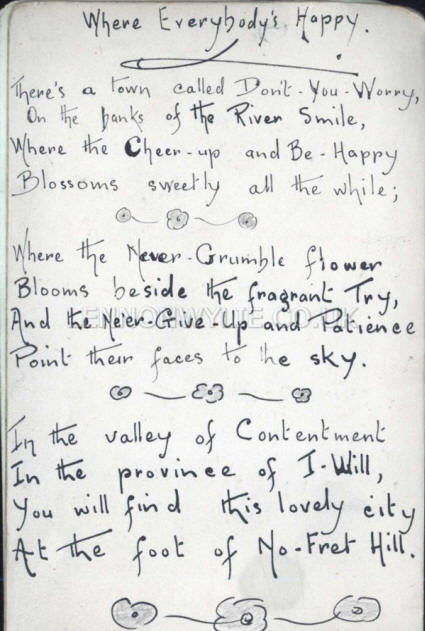 Where Everybody's Happy.
There's a town called Don't-You-Worry,
On the banks of the River Smile,
Where the Cheer-up and Be-Happy
Blossoms sweetly all the while;
Where the Never-Grumble flower
Blooms beside the fragrant Try,
And the Ne'er-Give-Up and Patience
Point their faces to the sky.
In the valley of Contentment
In the province of I-Will,
You will find this lovely city
At the foot of No-Fret Hill.